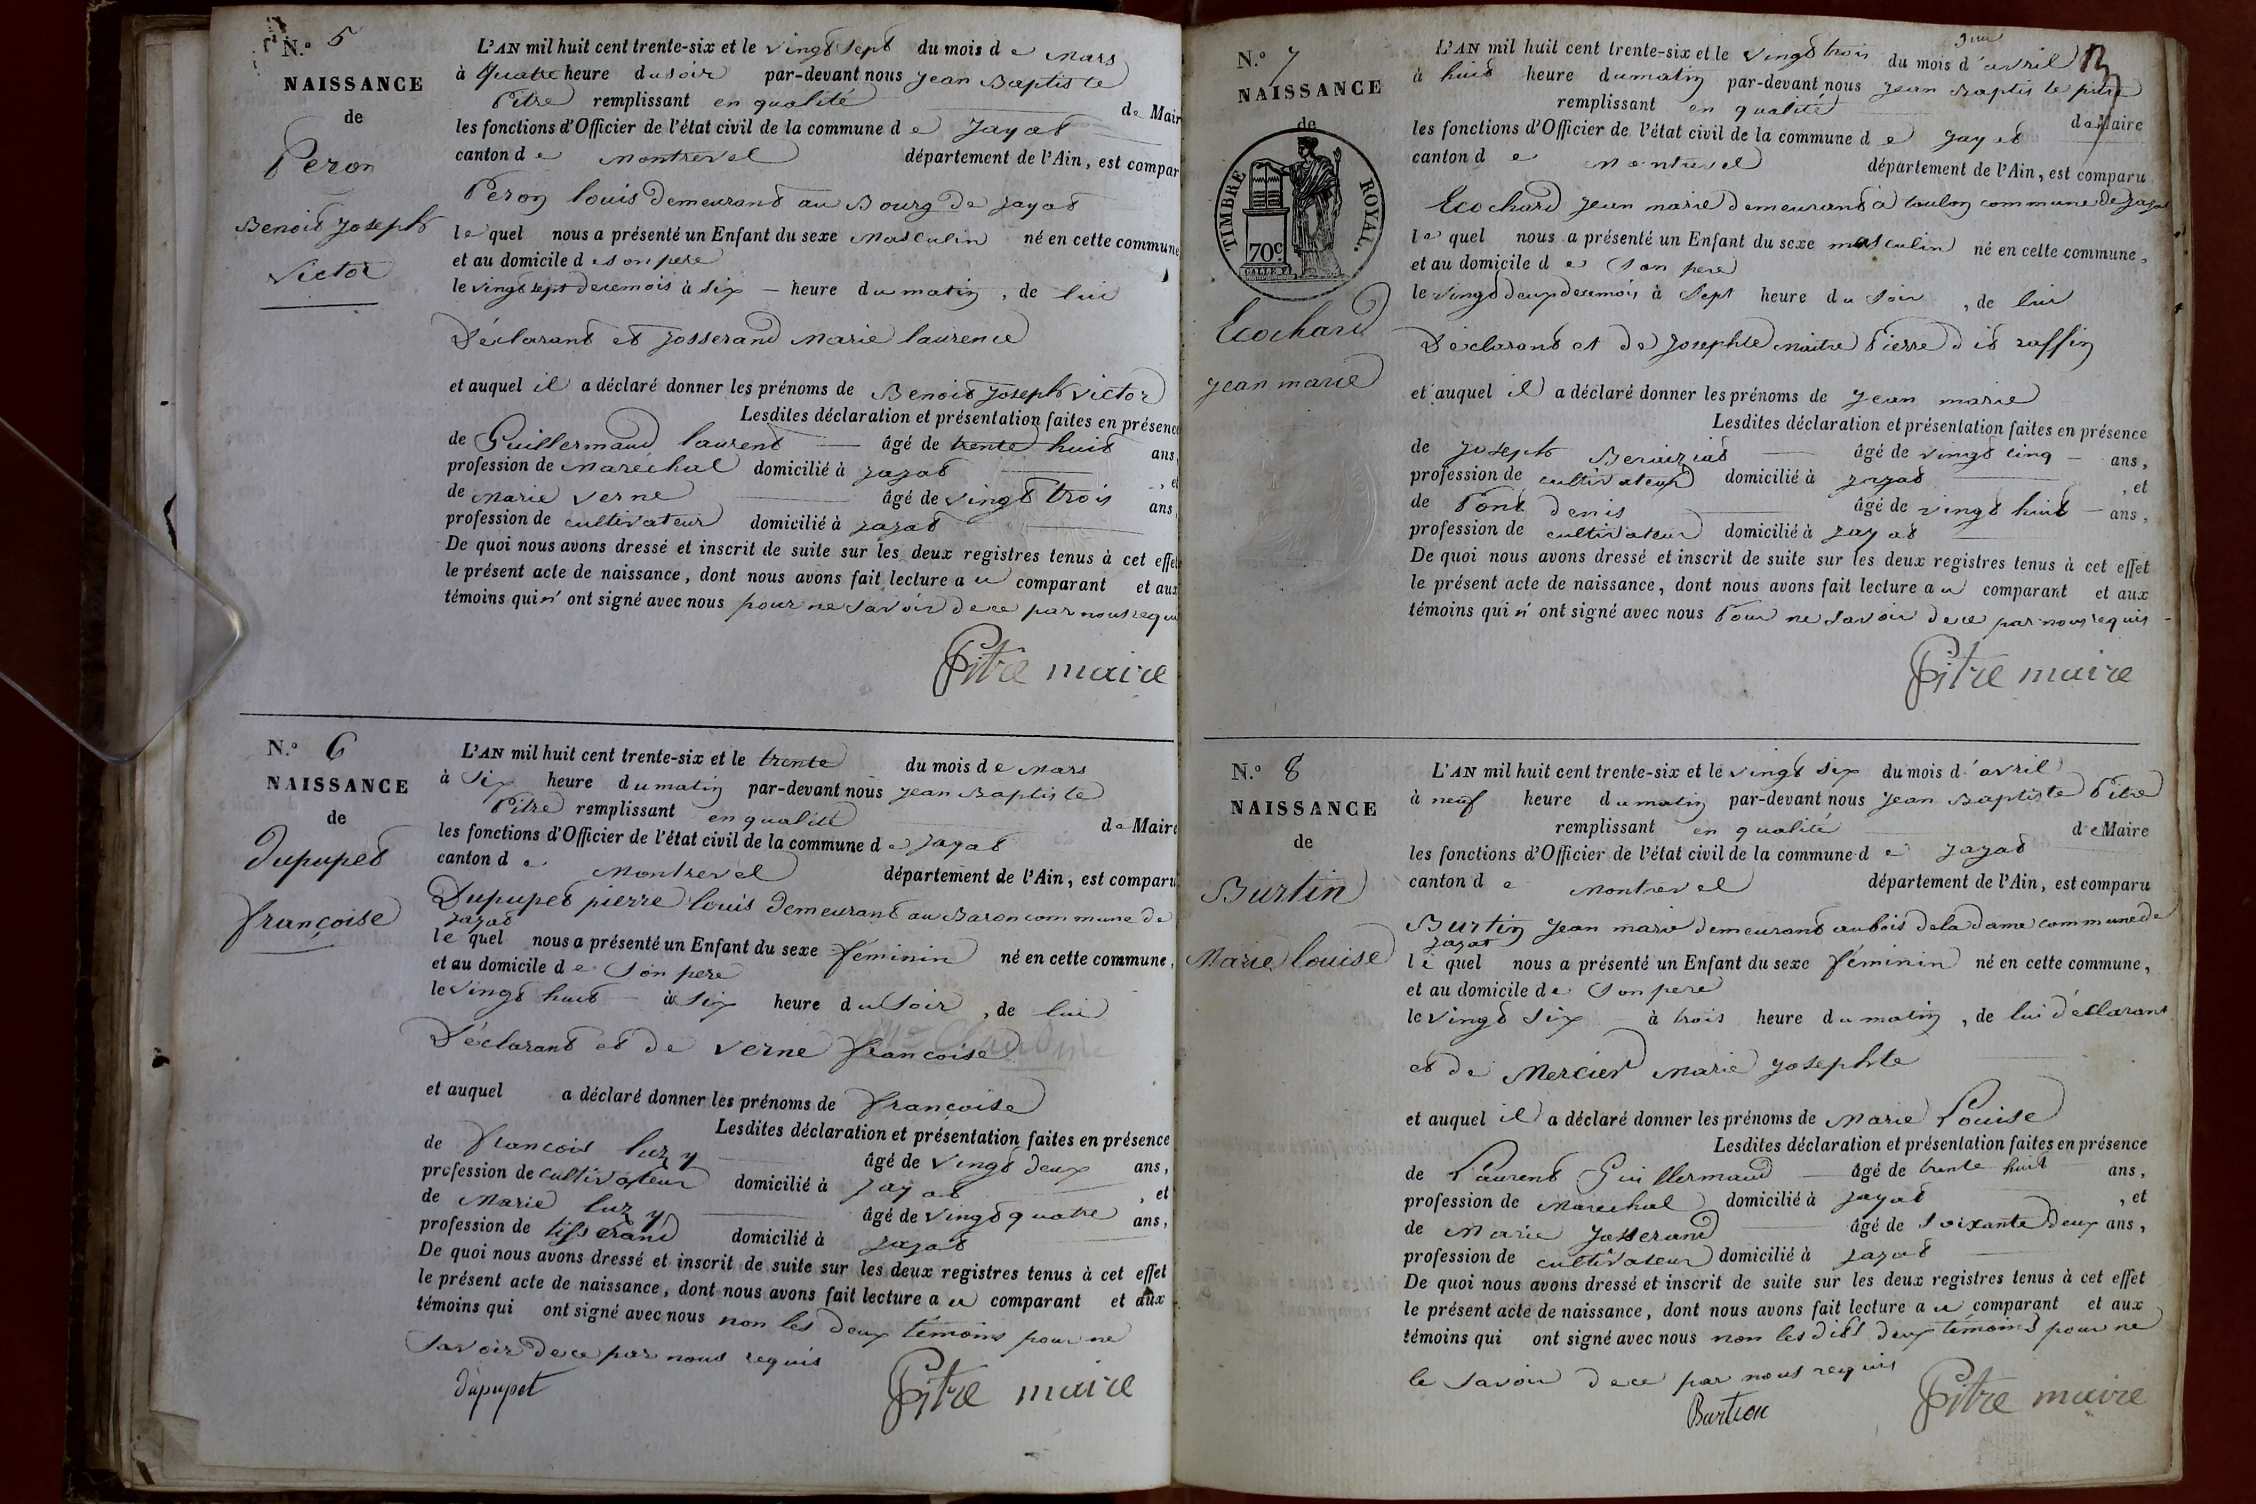 N.º 5
NAISSANCE
de
Peron
Benoit Joseph
Victor
L'AN mil huit cent trente-six et le vingt sept du mois de Mars
à Quatre heure du soir par-devant nous Jean Baptiste
Pitre remplissant en qualité de Mair
les fonctions d'Officier de l'état civil de la commune de Jayat
canton de Montrevel département de l'Ain, est compar
Peron louis demeurant au Bourg de jayat
lequel nous a présenté un Enfant du sexe Masculin né en cette commune
et au domicile de son pere
le vingt sept de ce mois à six heure du matin, de lui
Déclarant et josserand Marie laurence
et auquel il a déclaré donner les prénoms de Benoit Joseph victor
Lesdites déclaration et présentation faites en présence
de Guillermaud laurent âgé de trente huit ans,
profession de Maréchal domicilié à jayat, et
de Marie verne âgé de vingt trois ans
profession de cultivateur domicilié à jayat
De quoi nous avons dressé et inscrit de suite sur les deux registres tenus à cet effet
le présent acte de naissance, dont nous avons fait lecture au comparant et aux
témoins qui n'ont signé avec nous pour ne savoir de ce par nous requis
Pitre maire
N.º 6
NAISSANCE
de
Dupupet
françoise
L'AN mil huit cent trente-six et le trente du mois de Mars
à Six heure du matin par-devant nous Jean Baptiste
Pitre remplissant en qualité de Maire
les fonctions d'Officier de l'état civil de la commune de jayat
canton de Montrevel département de l'Ain, est comparu
Dupupet pierre louis demeurant au Baron commune de
jayat
lequel nous a présenté un Enfant du sexe féminin né en cette commune,
et au domicile de Son pere
le vingt huit à six heure du soir, de lui
Déclarant et de verne françoise
et auquel a déclaré donner les prénoms de françoise
Lesdites déclaration et présentation faites en présence
de françois luzy âgé de vingt deux ans,
profession de cultivateur domicilié à jayat, et
de Marie luzy âgé de vingt quatre ans,
profession de tisserand domicilié à jayat
De quoi nous avons dressé et inscrit de suite sur les deux registres tenus à cet effet
le présent acte de naissance, dont nous avons fait lecture au comparant et aux
témoins qui ont signé avec nous non les deux témoins pour ne
savoir de ce par nous requis
dupupet
Pitre maire
N.º 7
NAISSANCE
de
TIMBRE ROYAL.
70c
Ecochard
jean marie
L'AN mil huit cent trente-six et le vingt trois du mois d'avril
à huit heure du matin par-devant nous Jean Baptiste pitre
remplissant en qualité de Maire
les fonctions d'Officier de l'état civil de la commune de jayat
canton de Montrevel département de l'Ain, est comparu
Ecochard jean marie demeurant à toulon commune de jayat
lequel nous a présenté un Enfant du sexe masculin né en cette commune,
et au domicile de son pere
le vingt deux de ce mois à sept heure du soir, de lui
Déclarant et de josephte maitre Pierre dit raffin
et auquel il a déclaré donner les prénoms de jean marie
Lesdites déclaration et présentation faites en présence
de joseph âgé de vingt cinq ans,
profession de cultivateur domicilié à jayat, et
de Pont denis âgé de vingt huit ans,
profession de cultivateur domicilié à jayat
De quoi nous avons dressé et inscrit de suite sur les deux registres tenus à cet effet
le présent acte de naissance, dont nous avons fait lecture au comparant et aux
témoins qui n'ont signé avec nous Pour ne savoir de ce par nous requis
Pitre maire
N.º 8
NAISSANCE
de
Burtin
Marie louise
L'AN mil huit cent trente-six et le vingt six du mois d'avril
à neuf heure du matin par-devant nous Jean Baptiste Pitre
remplissant en qualité de Maire
les fonctions d'Officier de l'état civil de la commune de jayat
canton de Montrevel département de l'Ain, est comparu
Burtin Jean marie demeurant au bois de la dame commune de
jayat
lequel nous a présenté un Enfant du sexe féminin né en cette commune,
et au domicile de Son pere
le vingt six à trois heure du matin, de lui déclarant
et de Mercier Marie josephte
et auquel il a déclaré donner les prénoms de Marie Louise
Lesdites déclaration et présentation faites en présence
de Laurent Guillermaud âgé de trente huit ans,
profession de Marechal domicilié à jayat, et
de Marie Josserand âgé de soixante deux ans,
profession de cultivateur domicilié à jayat
De quoi nous avons dressé et inscrit de suite sur les deux registres tenus à cet effet
le présent acte de naissance, dont nous avons fait lecture au comparant et aux
témoins qui ont signé avec nous non les dits deux témoins pour ne
le savoir de ce par nous requis
Burtion
Pitre maire